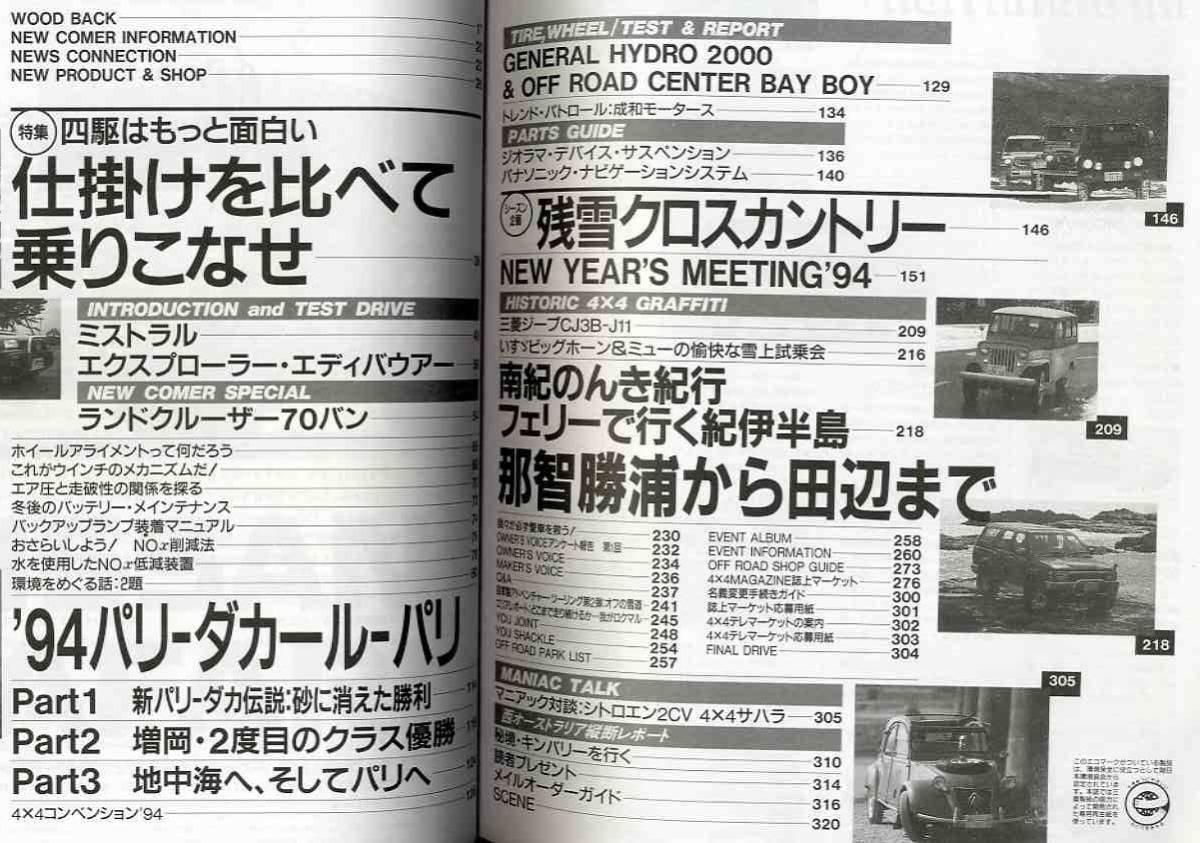 WOOD BACK
NEW COMER INFORMATION
NEWS CONNECTION
NEW PRODUCT & SHOP
特集 四駆はもっと面白い
仕掛けを比べて
乗りこなせ
INTRODUCTION and TEST DRIVE
ミストラル
エクスプローラー・エディバウアー
NEW COMER SPECIAL
ランドクルーザー70バン
ホイールアライメントって何だろう
これがウインチのメカニズムだ!
エア圧と走破性の関係を探る
冬後のバッテリー・メインテナンス
バックアップランプ装着マニュアル
おさらいしよう! NOx削減法
水を使用したNOx低減装置
環境をめぐる話:2題
'94パリ-ダカール-パリ
Part1 新パリ-ダカ伝説:砂に消えた勝利
Part2 増岡・2度目のクラス優勝
Part3 地中海へ、そしてパリへ
4×4コンベンション'94
TIRE, WHEEL/TEST & REPORT
GENERAL HYDRO 2000
& OFF ROAD CENTER BAY BOY 129
トレンド・パトロール:成和モータース 134
PARTS GUIDE
ジオラマ・デバイス・サスペンション 136
パナソニック・ナビゲーションシステム 140
シーズン企画 残雪クロスカントリー 146
NEW YEAR'S MEETING'94 151
HISTORIC 4×4 GRAFFITI
三菱ジープCJ3B-J11 209
いすゞビッグホーン&ミューの愉快な雪上試乗会 216
南紀のんき紀行
フェリーで行く紀伊半島 218
那智勝浦から田辺まで
我々が必ず愛車を救う! 230
OWNER'S VOICEアンケート報告 第1回 232
OWNER'S VOICE 234
MAKER'S VOICE 236
Q&A 237
アドベンチャー・ツーリング第2弾:オフの雪道 241
エリアレポート:どこまで走り続けるか…我がロクマル 245
YOU JOINT 248
YOU SHACKLE 254
OFF ROAD PARK LIST 257
EVENT ALBUM 258
EVENT INFORMATION 260
OFF ROAD SHOP GUIDE 273
4×4MAGAZINE誌上マーケット 276
名義変更手続きガイド 300
誌上マーケット応募用紙 301
4×4テレマーケットの案内 302
4×4テレマーケット応募用紙 303
FINAL DRIVE 304
MANIAC TALK
マニアック対談:シトロエン2CV 4×4サハラ 305
西オーストラリア縦断レポート
秘境・キンバリーを行く 310
読者プレゼント 314
メイルオーダーガイド 316
SCENE 320
146
209
218
305
このエコマークがついている製品
は、環境保全に役立つとして財日
本環境協会から
認定されていま
す。本誌では三
菱製紙の協力に
よって開発され
た専用再生紙を
使っています。